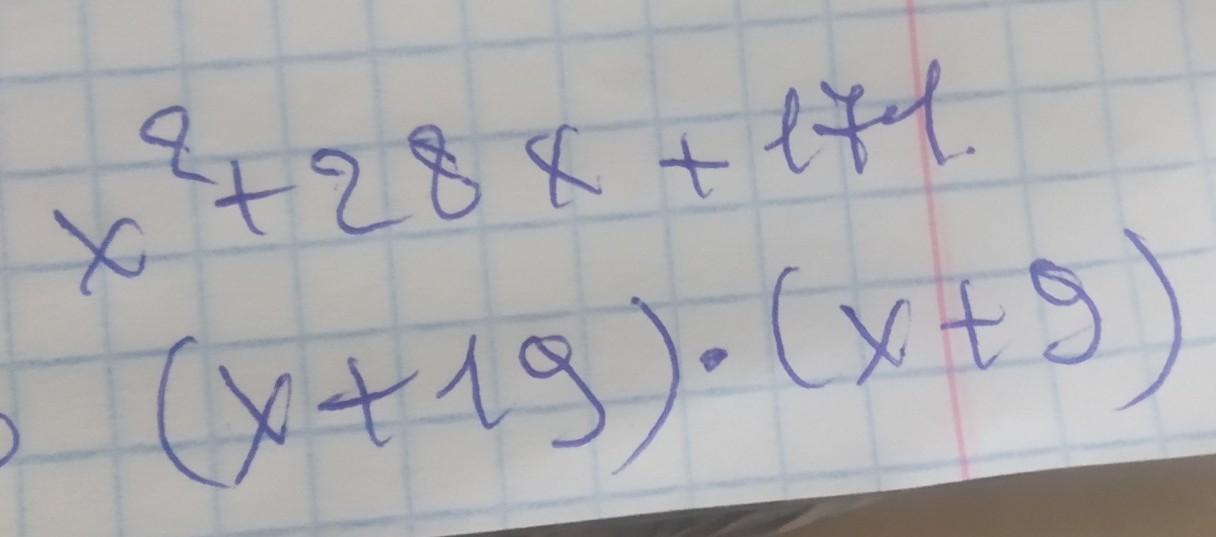 x² + 28x + 171.
(x + 19) · (x + 9)